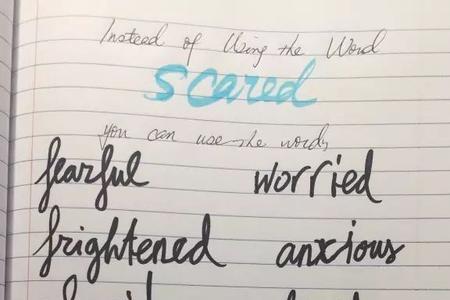 Instead of Using the Word
scared
you can use the words
fearful worried
frightened anxious